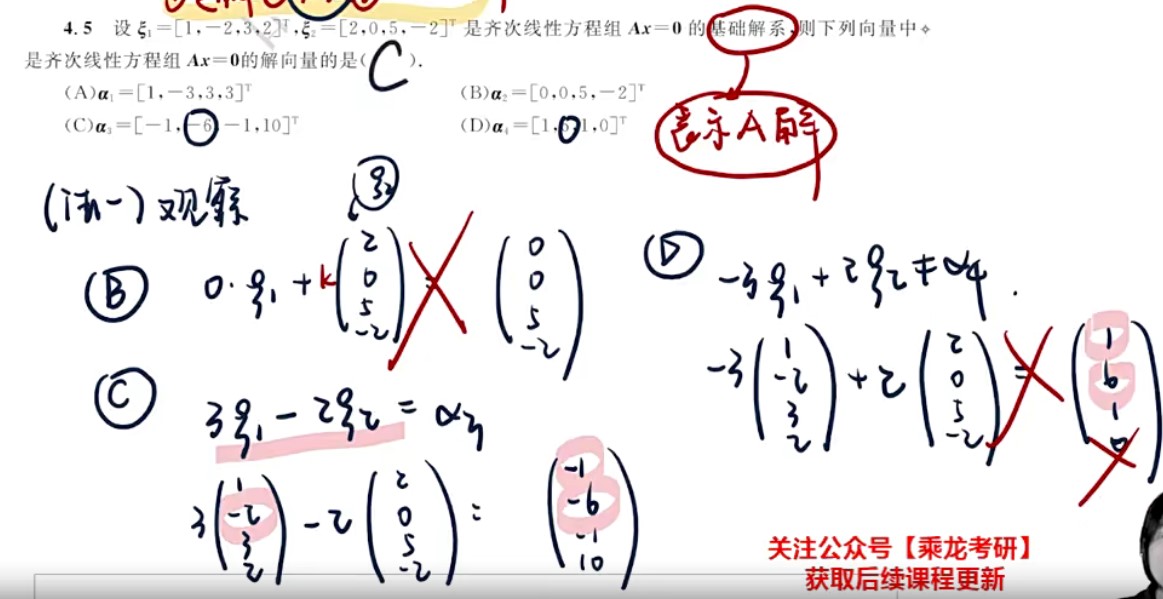 4.5 设 ξ₁=[1,-2,3,2]ᵀ,ξ₂=[2,0,5,-2]ᵀ 是齐次线性方程组 Ax=0 的基础解系,则下列向量中
是齐次线性方程组 Ax=0的解向量的是( C ).
(A)α₁=[1,-3,3,3]ᵀ (B)α₂=[0,0,5,-2]ᵀ
(C)α₃=[-1,-6,-1,10]ᵀ (D)α₄=[1,6,1,0]ᵀ
表示A解
(法一)观察
ξ₂
B 0·ξ₁ + k (2 0 5 -2) = (0 0 5 -2)
D -3ξ₁ + 2ξ₂ ≠ α₄.
-3 (1 -2 3 2) + 2 (2 0 5 -2) = (1 6 1 0)
C 3ξ₁ - 2ξ₂ = α₃
3 (1 -2 3 2) - 2 (2 0 5 -2) = (-1 -6 -1 10)
关注公众号【乘龙考研】
获取后续课程更新